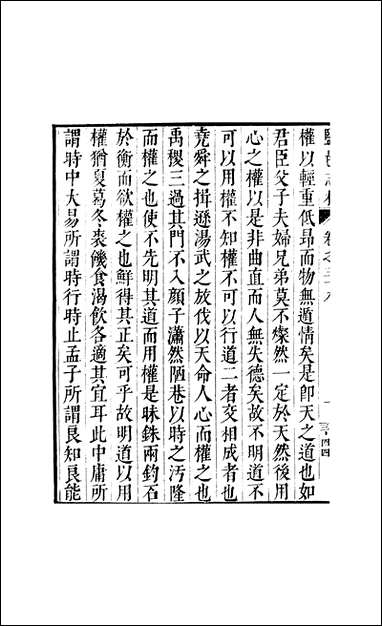 權以輕重低昂而物無遁情矣是卽天之道也如
君臣父子夫婦兄弟莫不燦然一定於天然後用
心之權以是非曲直而人無失德矣故不明道不
可以用權不知權不可以行道二者交相成者也
堯舜之揖遜湯武之放伐以天命人心而權之也
禹稷三過其門不入顏子瀟然陋巷以時之汚隆
而權之也使不先明其道而用權是昧銖兩鈞石
於衡而欲權之也鮮得其正矣可乎故明道以用
權猶夏葛冬裘饑食渴飮各適其宜耳此中庸所
謂時中大易所謂時行時止孟子所謂良知良能